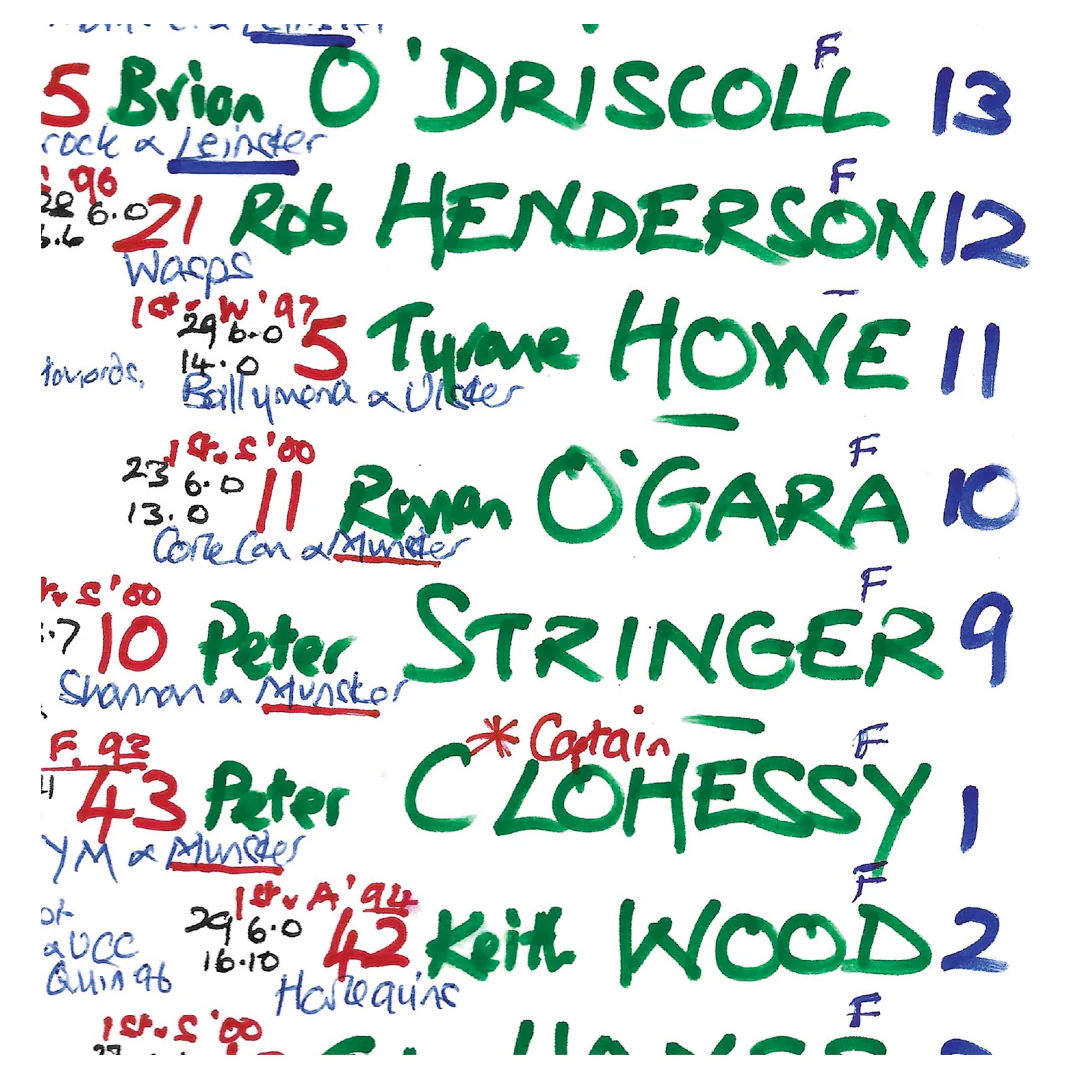 Leinster
F
5 Brian O'DRISCOLL 13
rock & Leinster
'96
F
6.0 21 Rob HENDERSON 12
Wasps
1st v W '97
29 6.0
14.0
5 Tyrone HOWE 11
towards.
Ballymena & Ulster
1st v S '00
F
23 6.0
13.0
11 Ronan O'GARA 10
Cork Con & Munster
S '00
F
.7 10 Peter STRINGER 9
Shannon & Munster
* Captain
F. 93
F
43 Peter CLOHESSY 1
YM & Munster
1st v A '94
F
29 6.0
16.10
42 Keith WOOD 2
& UCC
Quin 96
Harlequins
1st v S '00
F